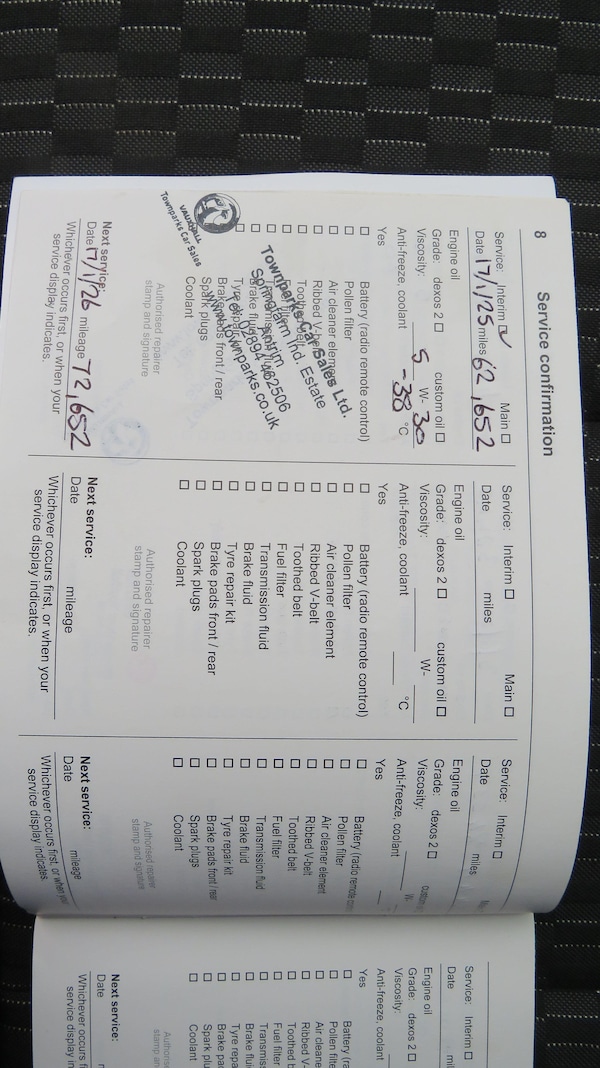 8 Service confirmation
Service: Interim ☑ Main ☐
Date 17/1/25 miles 62,652
Engine oil
Grade: dexos 2 ☐ custom oil ☐
Viscosity: 5 W- 30
Anti-freeze, coolant -38 °C
Yes
☐ Battery (radio remote control)
☐ Pollen filter
☐ Air cleaner element
☐ Ribbed V-belt
☐ Toothed belt
☐ Fuel filter
☐ Transmission fluid
☐ Brake fluid
☐ Tyre repair kit
Brake pads front / rear
Spark plugs
Coolant
Townparks Car Sales Ltd.
Ind. Estate
Antrim
Tel: 02894 462506
www.townparks.co.uk
VAUXHALL
Townparks Car Sales
Authorised repairer
stamp and signature
Next service:
Date 17/1/26 mileage 72,652
Whichever occurs first, or when your
service display indicates.
Service: Interim ☐ Main ☐
Date miles
Engine oil
Grade: dexos 2 ☐ custom oil ☐
Viscosity: W-
Anti-freeze, coolant °C
Yes
☐ Battery (radio remote control)
☐ Pollen filter
☐ Air cleaner element
☐ Ribbed V-belt
☐ Toothed belt
☐ Fuel filter
☐ Transmission fluid
☐ Brake fluid
☐ Tyre repair kit
☐ Brake pads front / rear
☐ Spark plugs
☐ Coolant
Authorised repairer
stamp and signature
Next service:
Date mileage
Whichever occurs first, or when your
service display indicates.
Service: Interim ☐
Date miles
Engine oil
Grade: dexos 2 ☐ custom
Viscosity: W-
Anti-freeze, coolant
Yes
☐ Battery (radio remote
☐ Pollen filter
☐ Air cleaner element
☐ Ribbed V-belt
☐ Toothed belt
☐ Fuel filter
☐ Transmission fluid
☐ Brake fluid
☐ Tyre repair kit
☐ Brake pads front / rear
☐ Spark plugs
☐ Coolant
Authorised repairer
stamp and signature
Next service:
Date mileage
Whichever occurs first, or when your
service display indicates.
Service: Interim ☐
Date mil
Engine oil
Grade: dexos 2 ☐
Viscosity:
Anti-freeze, coolant
Yes
☐ Battery (ra
☐ Pollen filter
☐ Air cleane
☐ Ribbed V-
☐ Toothed b
☐ Fuel filter
☐ Transmiss
☐ Brake flui
☐ Tyre repa
☐ Brake pa
☐ Spark plu
☐ Coolant
Authoris
stamp an
Next service:
Date m
Whichever occurs fi
service display in